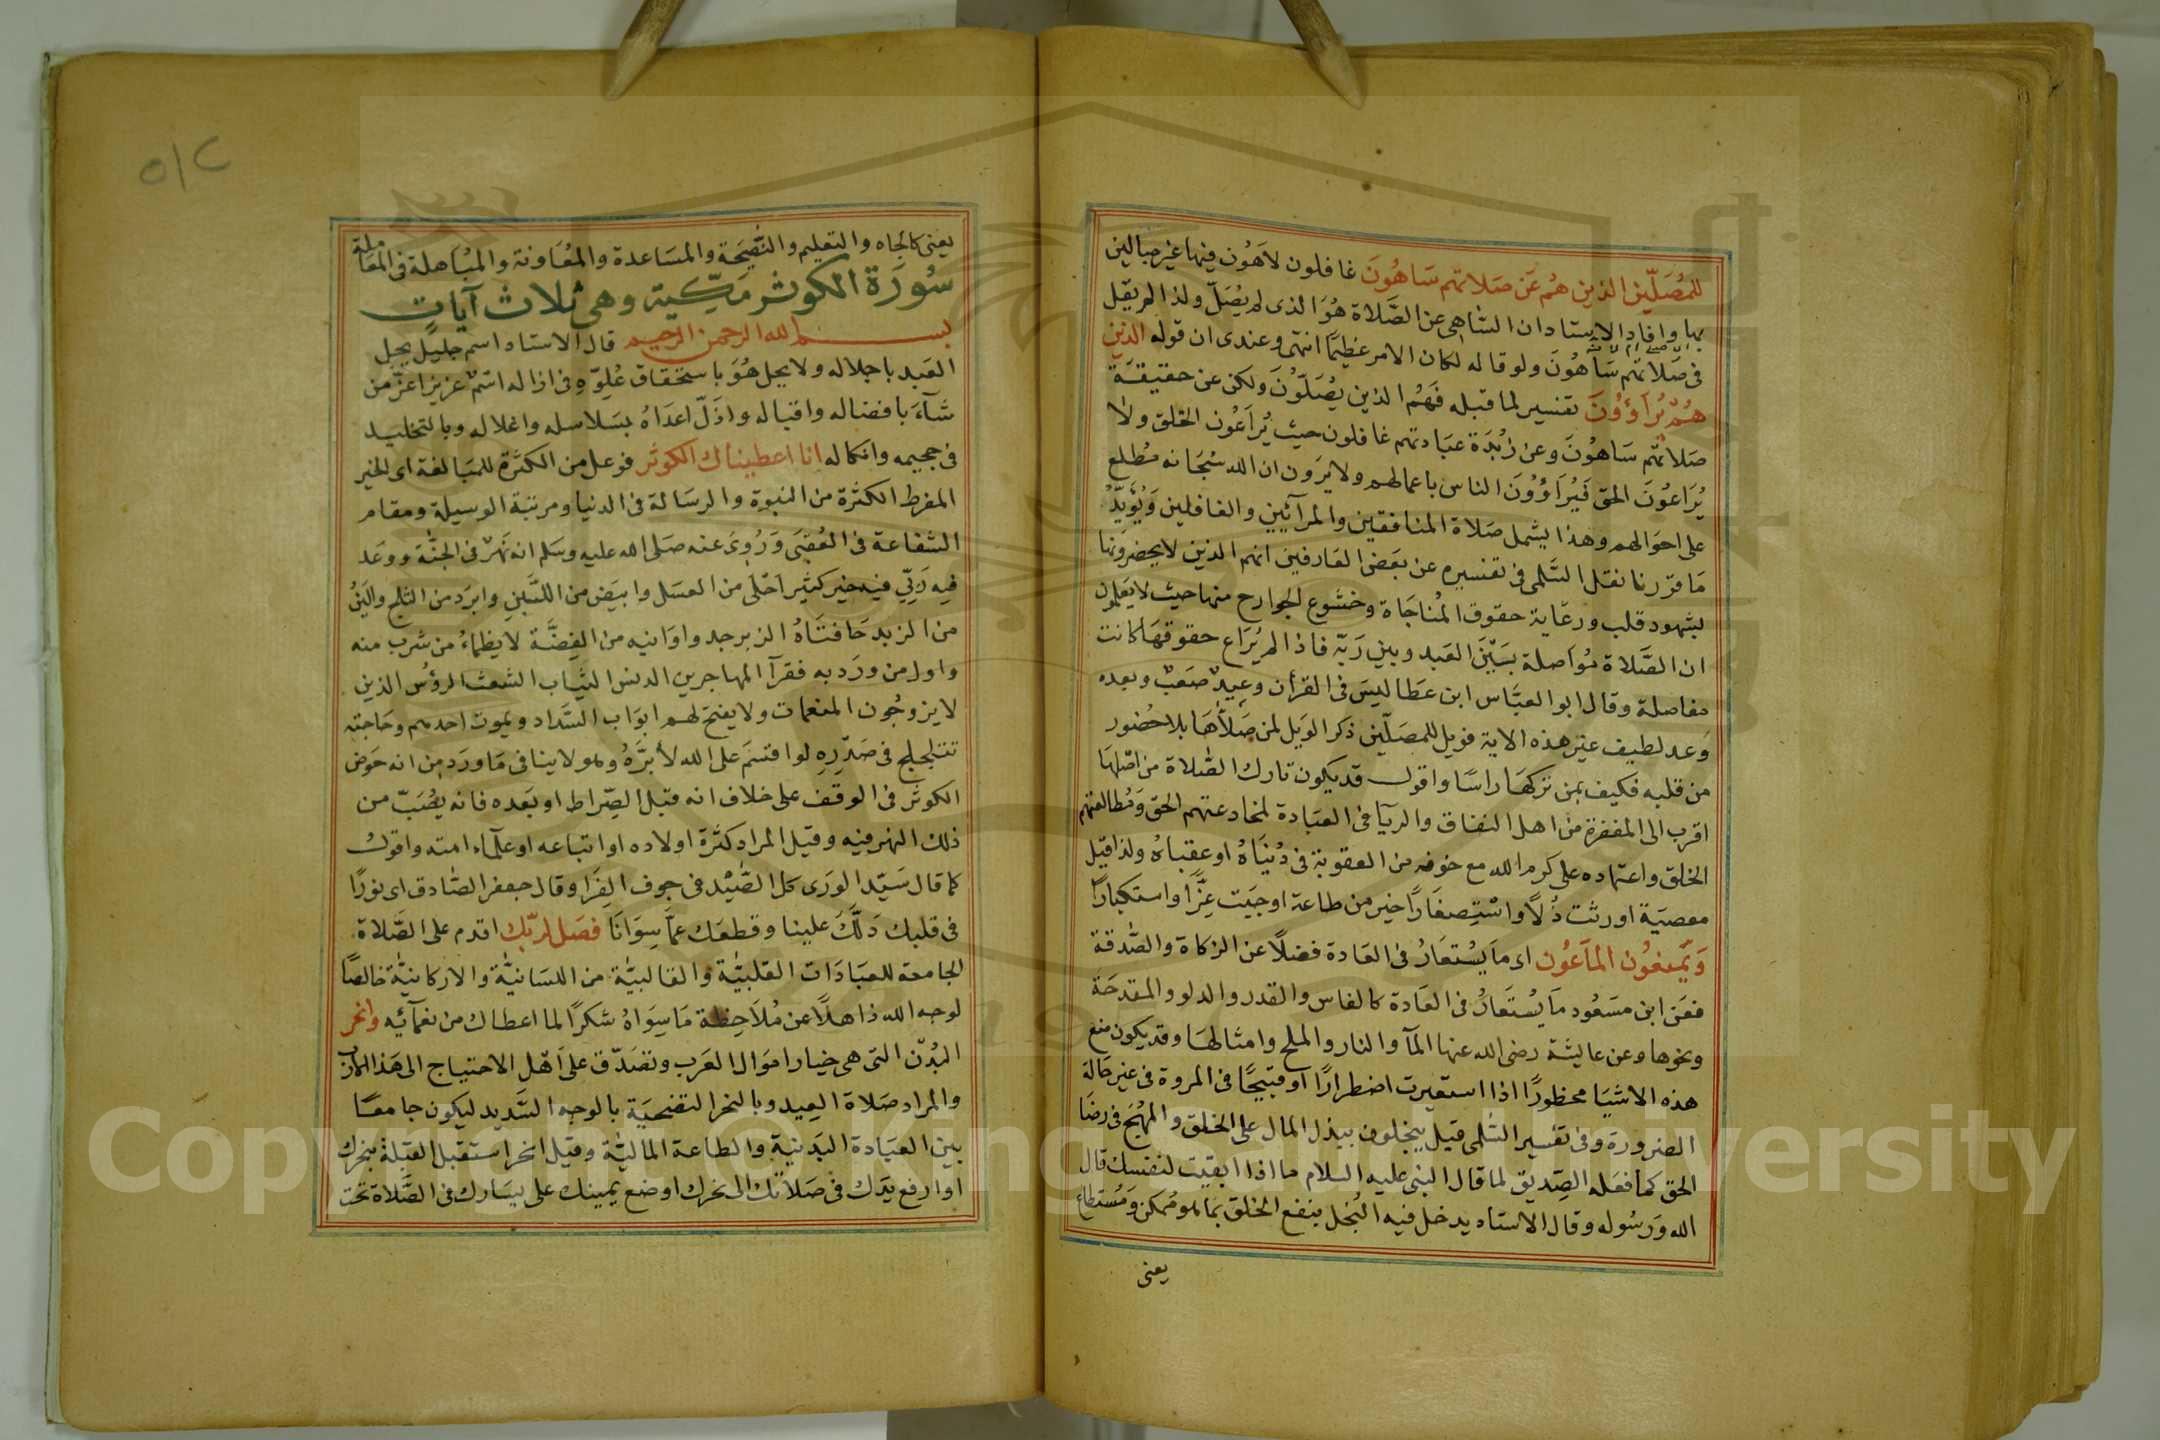 للمُصَلّين الذين هُم عَن صَلاتهم سَاهُونَ غافلون لاَهُون فيها غير مبالين
بها وافاد الاستاد ان السّاهى عن الصَّلاة هُوَ الذى لم يُصَلّ ولذا لم يقل
فى صَلاتهم سَاهُونَ ولو قاله لكان الامر عظيمًا انتهى وعندى ان قوله الذين
هُم يُرَآؤُونَ تفسير لما قبله فَهُم الذين يُصَلّوُنَ ولكن عن حقيقَة
صَلاتهم سَاهُونَ وعن زُبْدَة عبَادتهم غافلون حيث يُرَاعُون الخلق ولا
يُرَاعُونَ الحق فَيُرَاؤُونَ الناس باعمالهم ولا يَرَون ان الله سُبحَانه مُطلع
على احوالهم وهذا يشمل صَلاة المنافقين والمرآئين والغافلين وَيُؤيّدُ
مَا قررنا نقل السّلمى فى تفسيره عن بعَض العَارفين انهم الذين لا يحضروَنها
بشهود قلب ورعَاية حقوق المُناجَاة وخشوع الجوارح منها حيث لا يَعلمون
ان الصَّلاة مُواَصلة بَيْنَ العَبد وبين رَبّه فاذا لم يُرَاع حقوقهَا كانت
مفاصلة وقال ابو العبَّاس ابن عَطا ليسَ فى القرأن وَعِيدٌ صَعبٌ وبعده
وَعد لطيف غير هذه الاية فويل للمصَلّين ذكر الوَيل لمن صَلاّهَا بلا حُضور
من قلبه فكيف بمن تركهَا راسًا واقول قد يكون تارك الصّلاة من اصْلهَا
اقرب الى المغفرة من اهل النفاق والريآ فى العبَادة لمخادعتهم الحق وَمُطالعتهم
الخلق واعتماده على كرم الله مع خوفه من العقوبة فى دُنيَاهُ او عقبَاهُ ولذا قيل
معصيَة اورثت ذُلاًّ واسْتِصغَارًا خير من طاعة اوجَبت عِزًّا واستكبارًا
وَيَمنعُون المَاعُون اى مَا يُسْتعَارُ فى العَادة فضلاً عن الزكاة والصّدقة
فعَن ابن مسَعُود مَا يُسْتَعَارُ فى العَادة كالفاس والقدر والدلو والمقدحَة
ونحوها وعن عايشة رضى الله عنها المآ والنار والملح وامثالهَا وقد يكون منع
هذه الاشيَا محظورًا اذا استعيرت اضطرارًا او قبيحًا فى المروة فى غير حَالة
الضرورة وفى تفسير السّلمى قيل يبخلون ببذل المال على الخلق والمهَج فى رضَا
الحق كما فعَله الصّديق لما قال النبى عليه السلام ما اذا ابقيت لنفسك قال
الله وَرسُوله وقال الاستاد يدخل فيه البُخل بنفع الخلق بمَا هو مُمكن وَمُستطاع
يعنى
٥١٢
يعنى كالجاه والتعليم والنَّصِيحَة والمسَاعدة والمعُاَونة والمسَاهلة فى المعَاملة
سُورَة الكوثر مَكّية وهى ثلاث آيات
بســم الله الرحمن الرحيم قال الاستاد اسم جليل يجل
العَبد باجلاله ولا يجل هُوَ باستحقاق عُلِوّهِ فى ازاله اسْم عزيز اعزّ من
شآءَ بافضاله واقباله واذلّ اعدَاهُ بسَلاسله واغلاله وبالتخليد
فى جحيمه وانكاله انا اعطيناك الكوثر فوعل من الكثرة للمبَالغة اى الخير
المفرط الكثرة من النبوة والرسَالة فى الدنيا ومرتبَة الوسيلة ومقام
الشفاعة فى العُقبَى وَرُوِىَ عنه صَلى الله عليه وسَلم انه نَهَرٌ فى الجنّة ووعَد
فيه رَبّي فيه خير كثير احْلى من العسَل وابيَض من اللَّبَنِ وابرَد من الثلج والَينُ
من الزبد حَافتَاهُ الزبرجد واوَانيه من الفِضَّة لا يظماءُ من شرب منه
واول من ورَد به فقرآ المهاجرين الدنسُ الثيَاب الشعث الرؤُس الذين
لا يزوجُون المنعمات ولا يفتح لهم ابوَاب السَّداد ويموت احدهم وحَاجته
تتلجلج فى صَدرِهِ لو اقسَم على الله لأبَرَّهُ وهو لا ينافى مَا ورَد من انه حَوض
الكوثر فى الموقف على خلاف انه قبل الصّراط او بعَده فانه يصُبَبّ من
ذلك النهر فيه وقيل المراد كثرة اولاده او اتباعه او علمآء امته واقول
كما قال سَيّد الورَى كل الصَّيْد فى جوف الفِرَا وقال جعفر الصّادق اى نورًا
فى قلبك دَلَّكَ علينا وقطعَك عمّا سِوَانَا فصَل لربّك اقدم على الصَّلاة
الجامعة للعبَادَات القلبيَّة والقالبيَّة من اللسَانيَّة والاركانيَّة خالصًا
لوجه الله ذاهلاً عن مُلاَحِظة مَا سِوَاهُ شكرًا لما اعطاك من نعمآئِه وانحر
البُدْن التى هى خيار امَوال العَرب وتصَدّق علىَ اهْل الاحتياج الى هَذا المآرب
والمراد صَلاة العِيد وبالنحر التضحيَة بالوجه السَّديد ليكون جامعًا
بين العبَادة البَدنية والطاعة الماليّة وقيل انحر استقبل القبلة بنحرك
او ارفع يدَك فى صَلاتك الى نحرك او ضع يمينك على يسَارك فى الصَّلاة تحت
Copyright © King Saud University